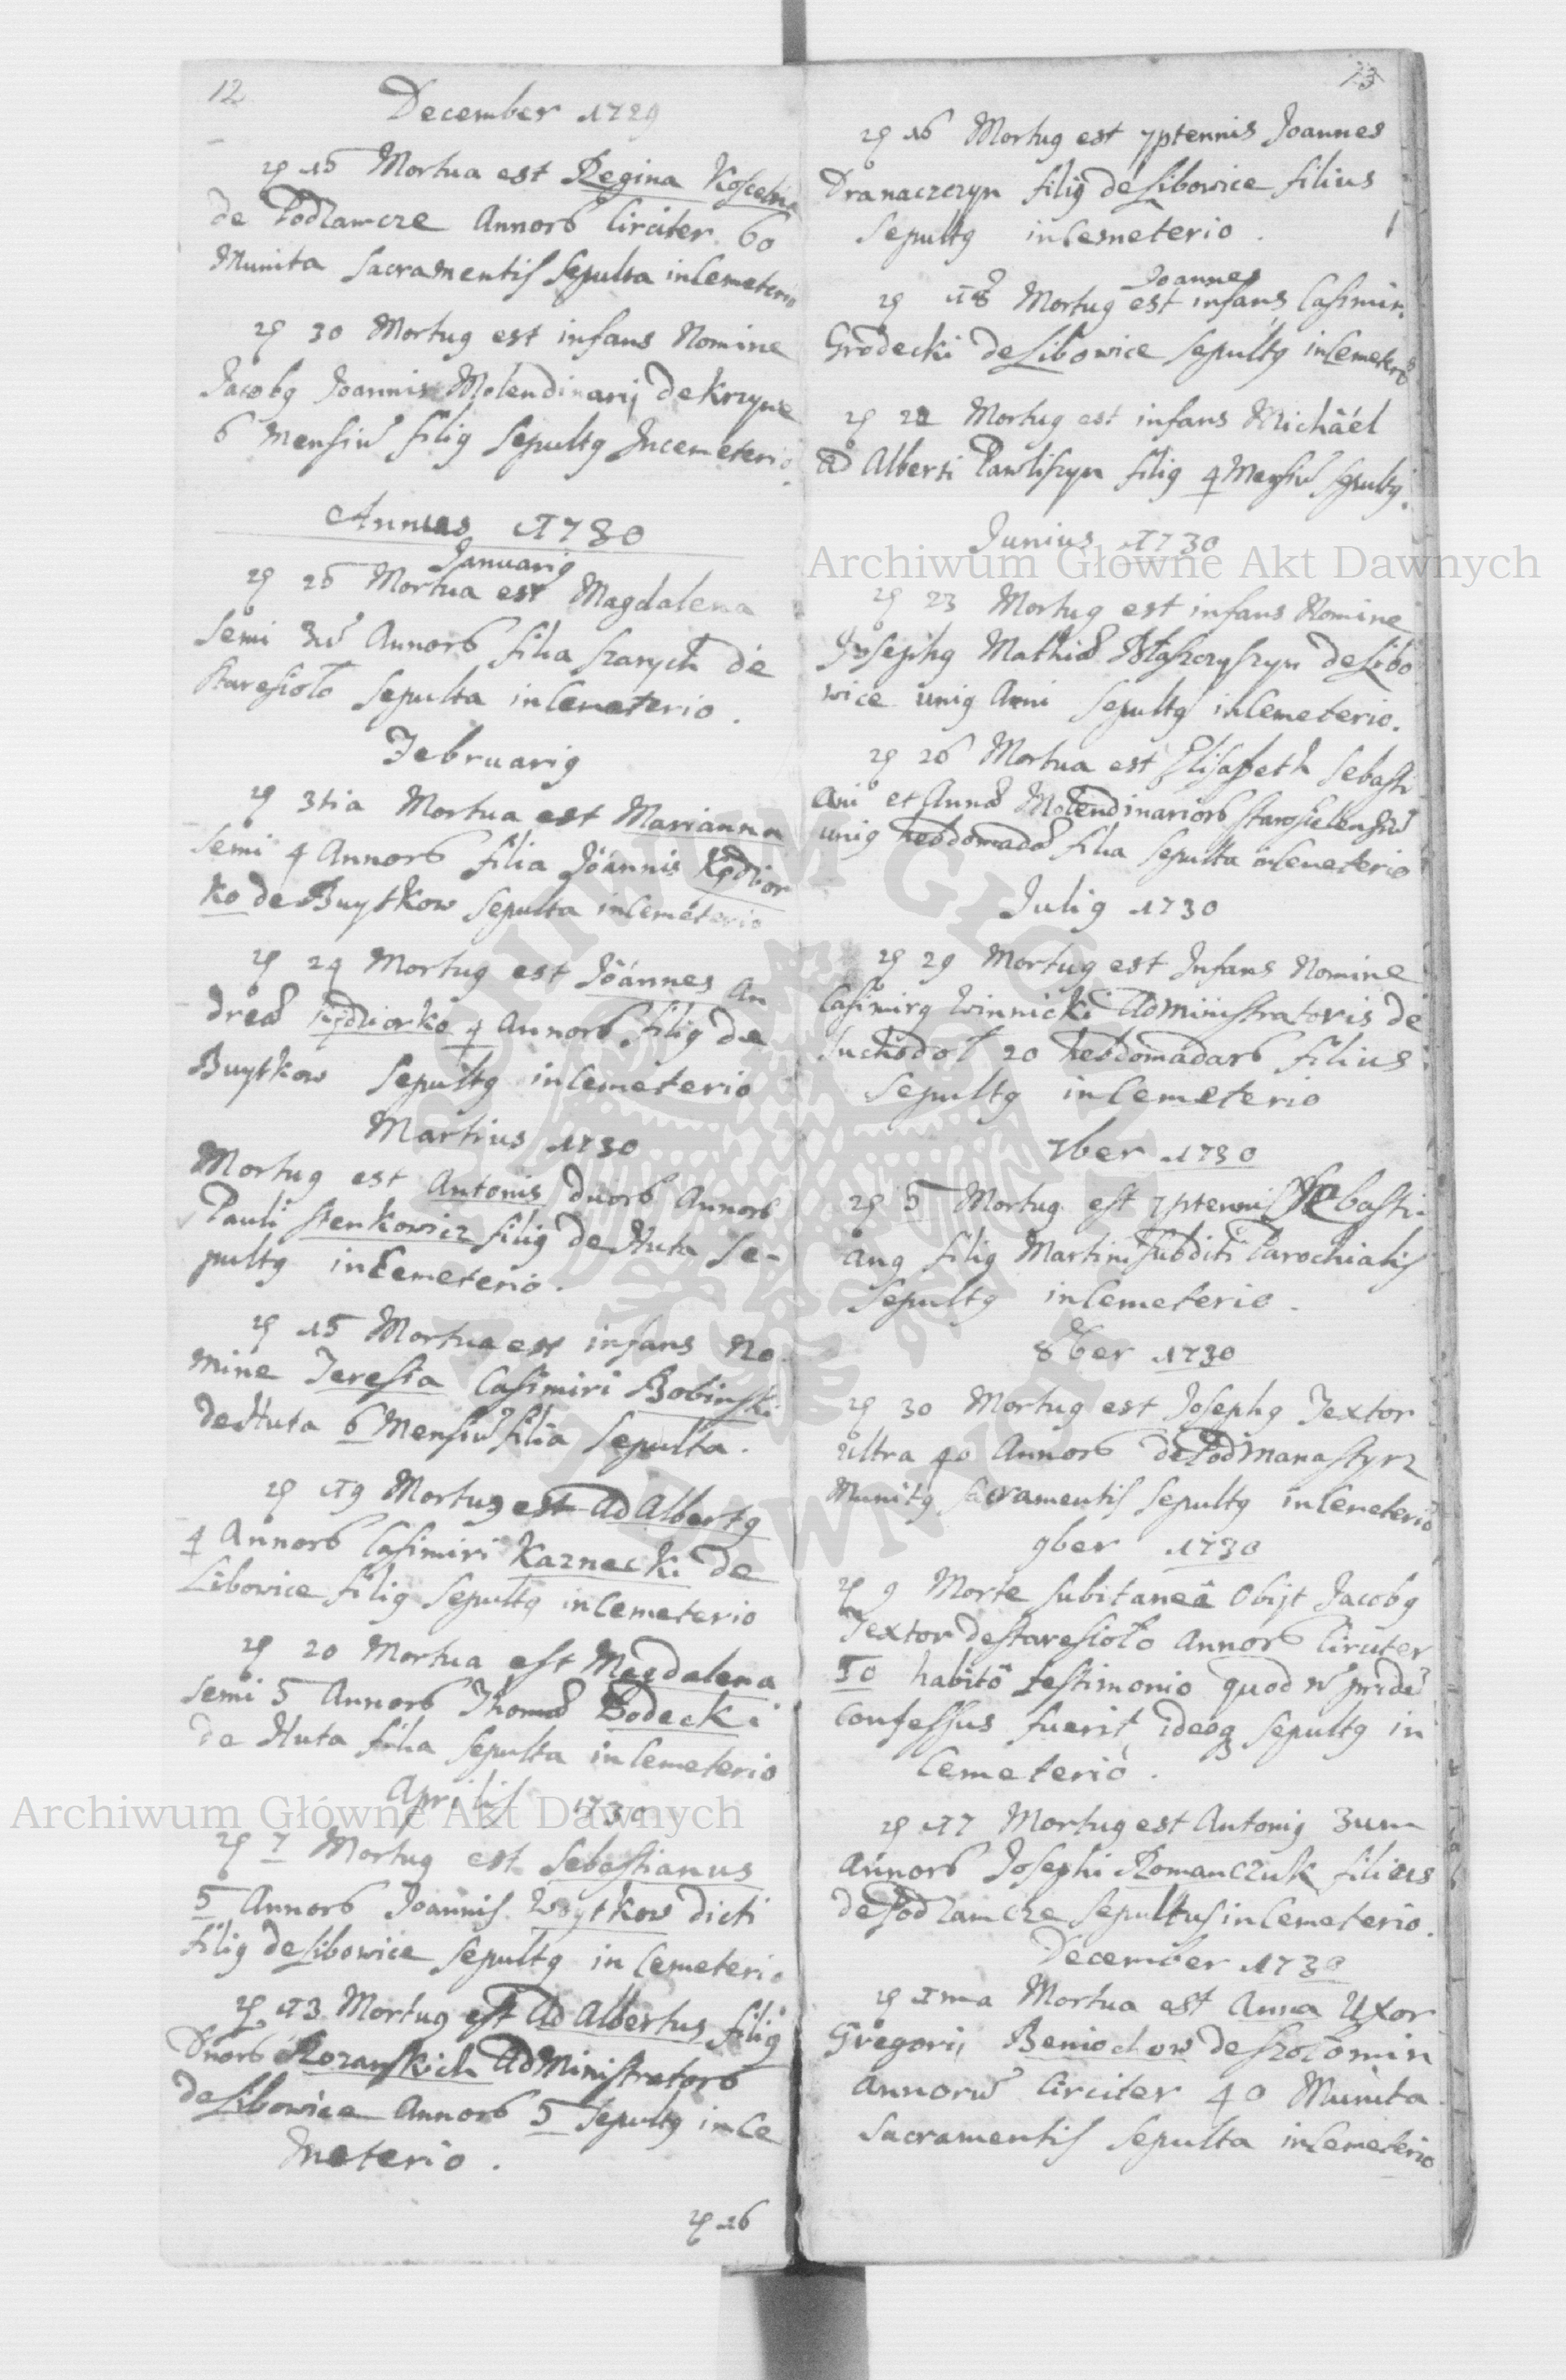 12
December 1729
25 15 Mortua est Regina Koscelna
de Podzamcze Annorb Circiter 60
Munita Sacramentis Sepulta in Cemeterio
30 Mortug est infans Nomine
Jacobg Joannis Molendinarij de Krzywe
6 Mensiu filig Sepultg In cemeterio
Annus 1730
Januarig
Mortua est Magdalena
Semi Annorb filia Szarych de
Staresioło Sepulta in Cemeterio.
Februarig
3tia Mortua est Marianna
Semi 4 Annorb filia Joannis Kędzior
ko de Buytkow Sepulta in Cemeterio
24 Mortug est Joannes An
dreæ Kędziorko 4 Annorb filig de
Buytkow Sepultg in Cemeterio
Martius 1730
Mortug est Antonis duorb Annorb
Pauli Stenkowicz filig de Huta Se-
pultg in Cemeterio.
15 Mortua est infans No
mine Teresia Casimiri Bobinski
de Huta 6 Mensiu filia Sepulta.
19 Mortug est Ad Albertg
4 Annorb Casimiri Kaznecki de
Libowice filig Sepultg in Cemeterio
20 Mortua est Magdalena
Semi 5 Annorb Thomæ Bodecki
de Huta filia Sepulta in Cemeterio
Aprilis 1730
7 Mortug est Sebastianus
5 Annorb Joannis Woytkow dicti
filig de Libowice Sepultg in Cemeterio
13 Mortug est Ad Albertus filig
Dnorb Rozanskich AdMinistratorb
de Libowice Annorb 5 Sepultg in Ce
meterio.
16
13
16 Mortug est 7ptennis Joannes
Dranaczczyn filig de Libowice filius
Sepultg in Cemeterio.
Joannes
18 Mortug est infans Casimiri
Grodecki de Libowice Sepultg in Cemeterio
22 Mortug est infans Michaél
Ad Alberti Pawliszyn filig 4 Mensiu Sepultg.
Junius 1730
23 Mortug est infans Nomine
Josephg Mathiæ Błaszczyszyn de Libo
wice unig Anni Sepultg in Cemeterio.
26 Mortua est Elisabeth Sebasti
ani et Annæ Molendinariorb Starosielensiu
unig hebdomadæ filia Sepulta in Cemeterio
Julig 1730
29 Mortug est Infans Nomine
Casimirg Winnicki Administratoris de
Suchodoł 20 hebdomadarb filius
Sepultg in Cemeterio
7ber 1730
5 Mortug est 7ptennis Sebasti
ang filig Martini Subditi Parochialis
Sepultg in Cemeterio.
8ber 1730
30 Mortug est Josephg Textor
Ultra 40 Annorb de Podmanastyrz
Munitg Sacramentis Sepultg in Cemeterio
9ber 1730
9 Morte Subitanea Obijt Jacobg
Textor de Staresioło Annorb Circiter
50 habitô testimonio quod pride
Confessus fuerit, ideoq Sepultg in
Cemeterio.
17 Mortug est Antonig 3um
Annorb Josephi Romanczuk filius
de Podzamcze Sepultus in Cemeterio.
December 1730
1ma Mortua est Anna Uxor
Gregorij Beniochow de Szołomin
Annoru Circiter 40 Munita
Sacramentis Sepulta in Cemeterio
Archiwum Główne Akt Dawnych
Archiwum Główne Akt Dawnych